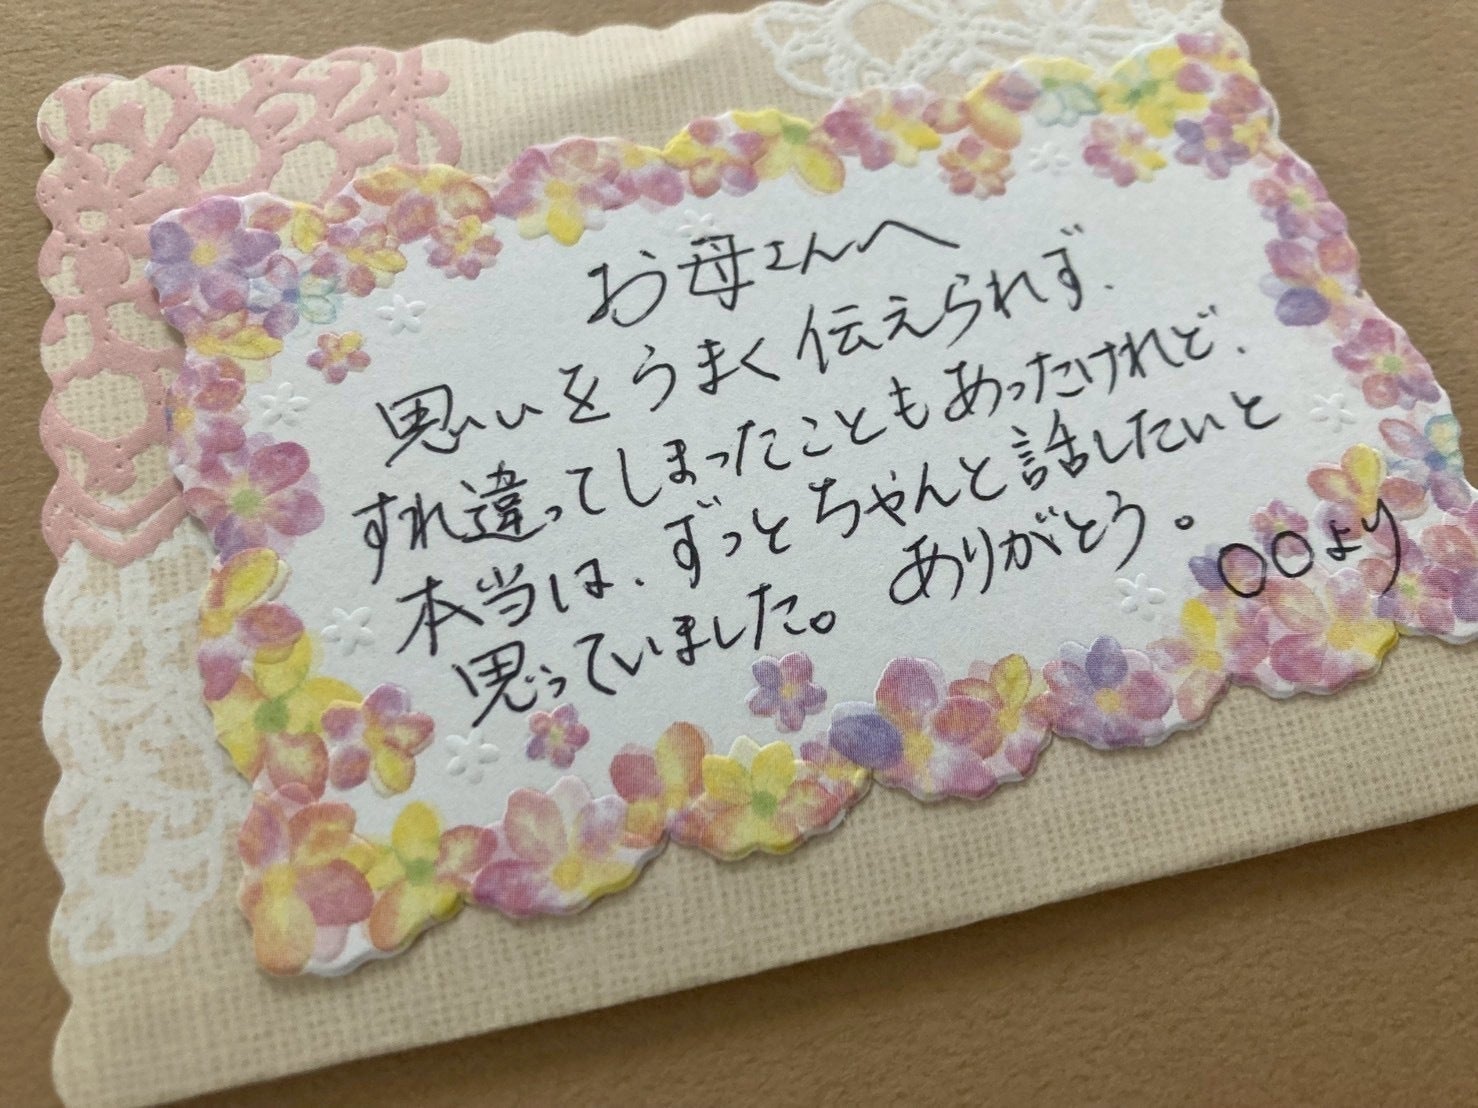 お母さんへ
思いをうまく伝えられず、
すれ違ってしまったこともあったけれど、
本当は、ずっとちゃんと話したいと
思っていました。ありがとう。
〇〇より